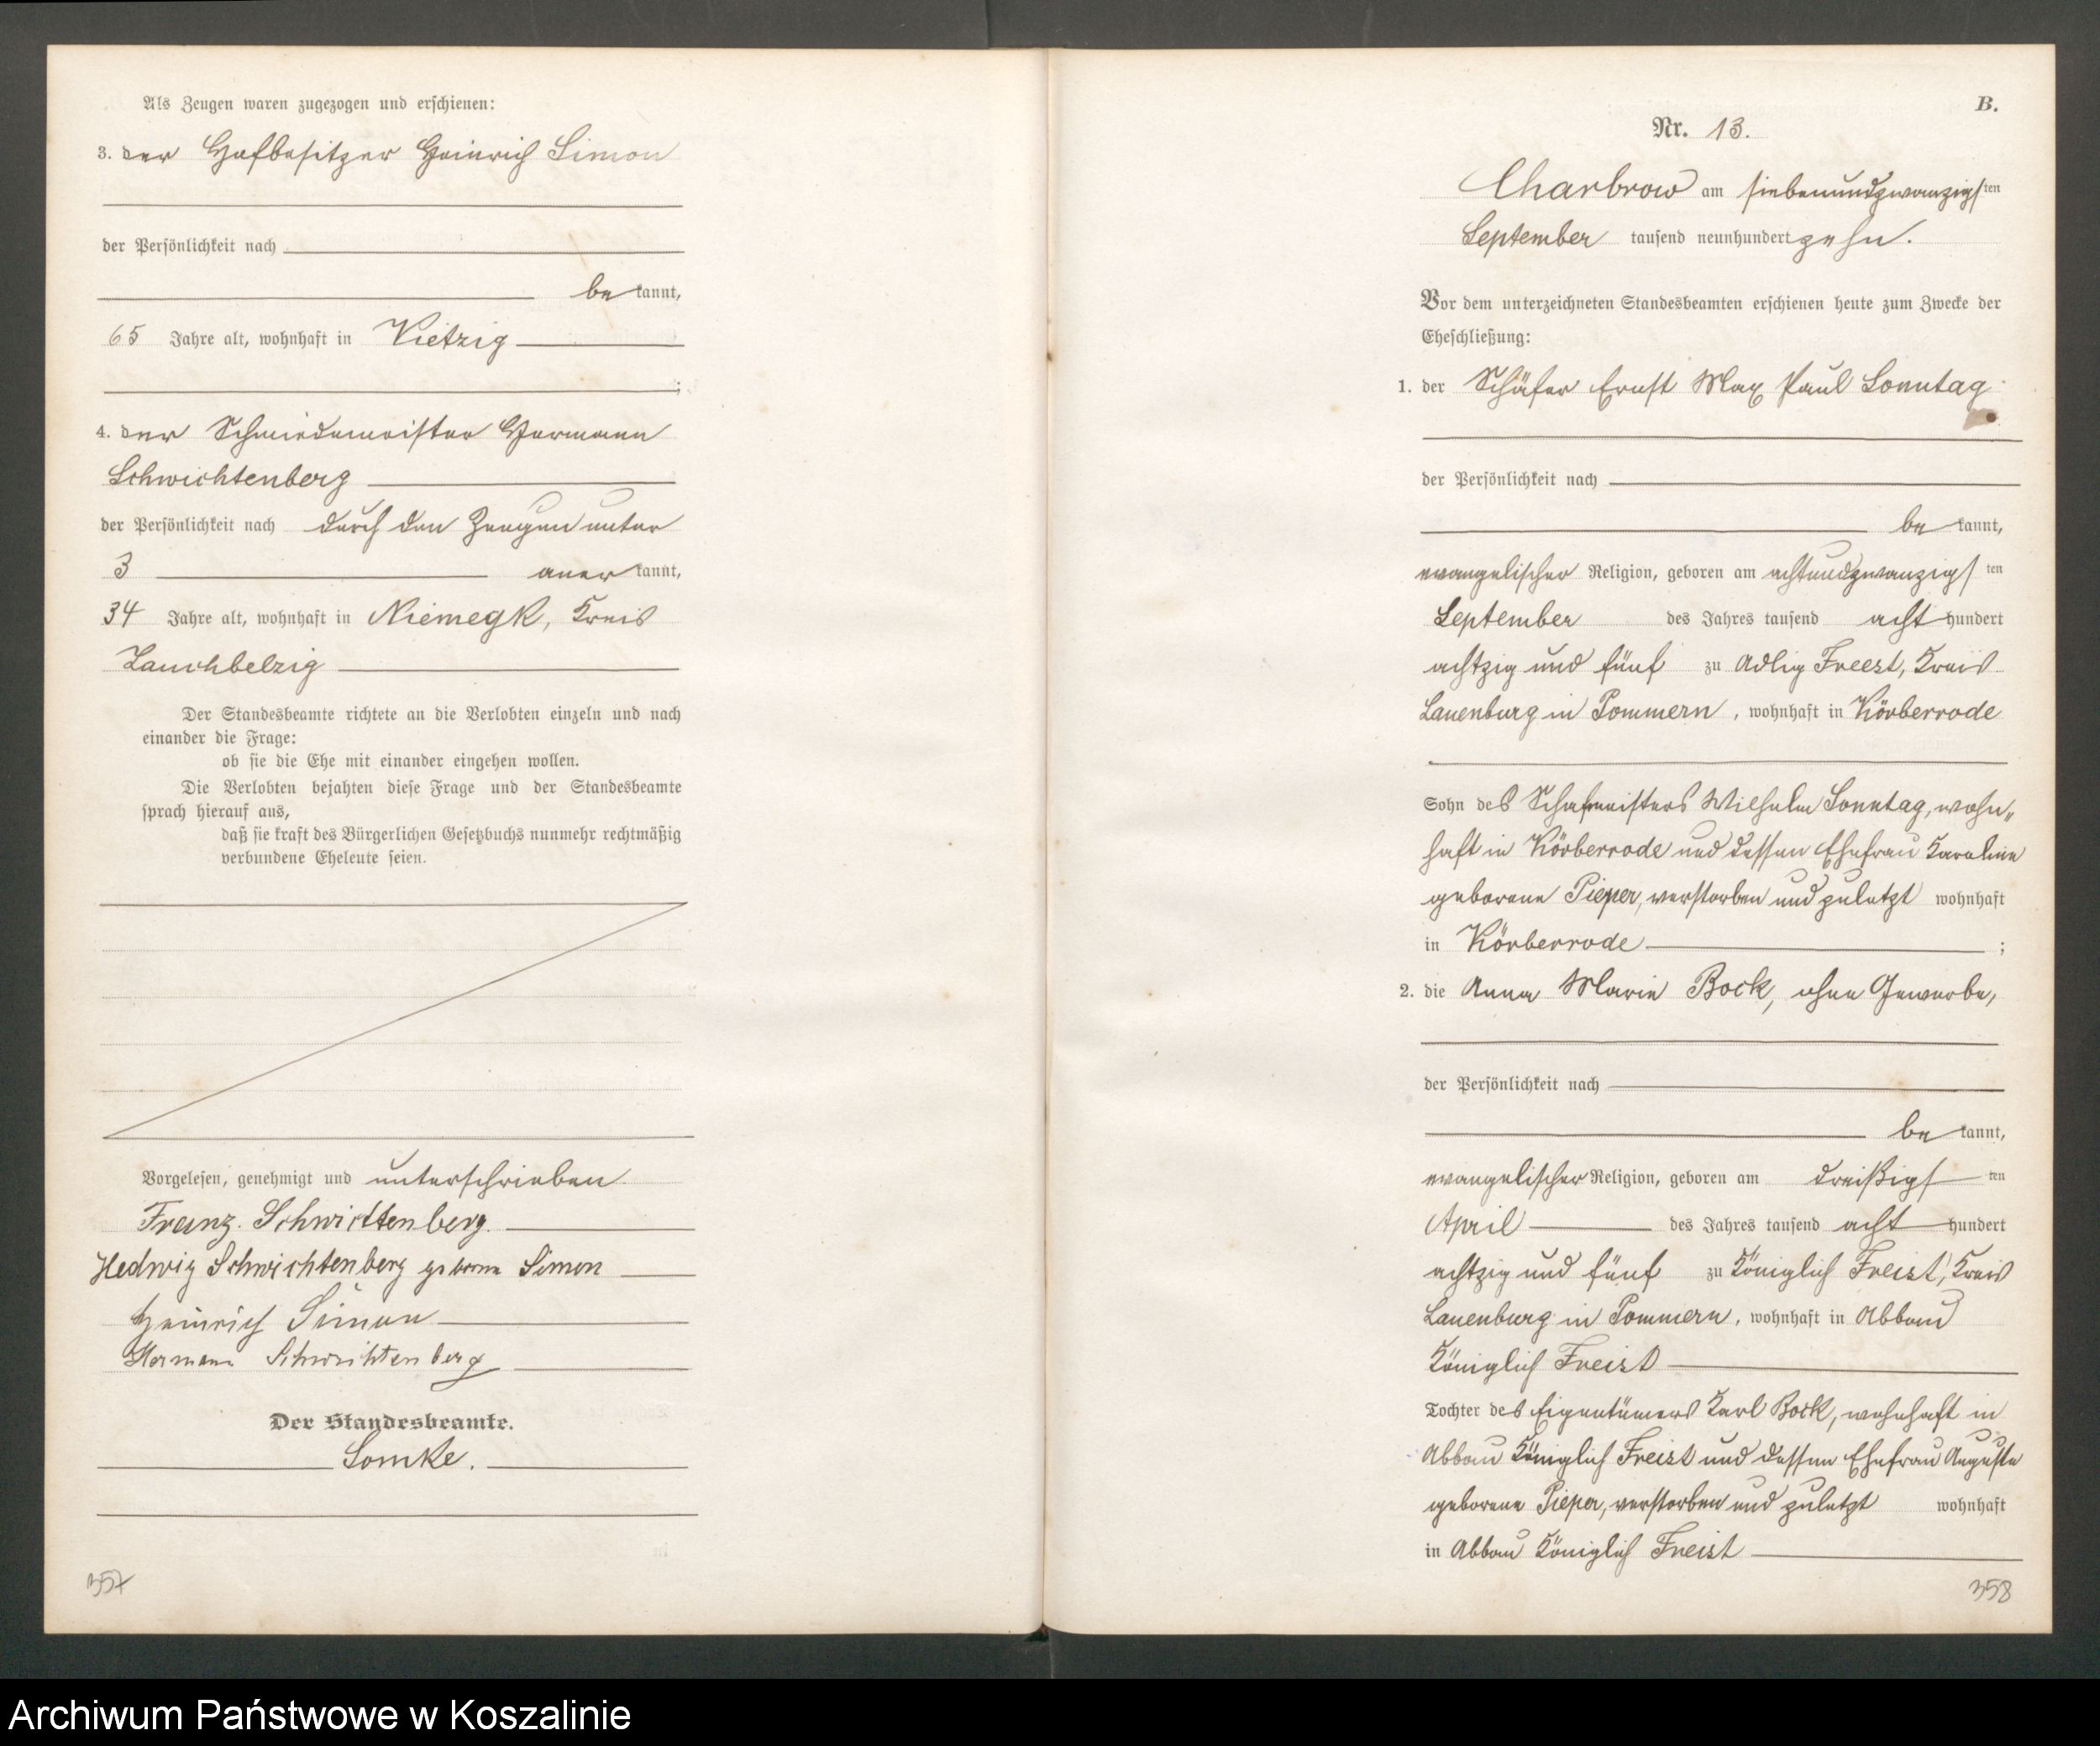 Als Zeugen waren zugezogen und erschienen:
3. der Hofbesitzer Heinrich Simon
der Persönlichkeit nach
be kannt,
65 Jahre alt, wohnhaft in Vietzig
;
4. der Schmiedemeister Hermann
Schwichtenberg
der Persönlichkeit nach durch den Zeugen unter
3 aner kannt,
34 Jahre alt, wohnhaft in Niemegk, Kreis
Zauchbelzig
Der Standesbeamte richtete an die Verlobten einzeln und nach
einander die Frage:
ob sie die Ehe mit einander eingehen wollen.
Die Verlobten bejahten diese Frage und der Standesbeamte
sprach hierauf aus,
daß sie kraft des Bürgerlichen Gesetzbuchs nunmehr rechtmäßig
verbundene Eheleute seien.
Vorgelesen, genehmigt und unterschrieben
Franz Schwichtenberg.
Hedwig Schwichtenberg geborne Simon
Heinrich Simon
Hermann Schwichtenberg
Der Standesbeamte.
Somke.
357
B.
Nr. 13.
Charbrow am siebenundzwanzigsten
September tausend neunhundert zehn.
Vor dem unterzeichneten Standesbeamten erschienen heute zum Zwecke der
Eheschließung:
1. der Schäfer Ernst Max Paul Sonntag
der Persönlichkeit nach
be kannt,
evangelischer Religion, geboren am achtundzwanzigsten
September des Jahres tausend acht hundert
achtzig und fünf zu Adlig Freest, Kreis
Lauenburg in Pommern, wohnhaft in Körberrode
Sohn des Schafmeisters Wilhelm Sonntag, wohn„
haft in Körberrode und dessen Ehefrau Karoline
geborene Pieper, verstorben und zuletzt wohnhaft
in Körberrode ;
2. die Anna Marie Bock, ohne Gewerbe,
der Persönlichkeit nach
be kannt,
evangelischer Religion, geboren am dreißigsten
April des Jahres tausend acht hundert
achtzig und fünf zu Königlich Freist, Kreis
Lauenburg in Pommern, wohnhaft in Abbau
Königlich Freist
Tochter des Eigentümers Karl Bock, wohnhaft in
Abbau Königlich Freist und dessen Ehefrau Auguste
geborene Pieper, verstorben und zuletzt wohnhaft
in Abbau Königlich Freist
358
Archiwum Państwowe w Koszalinie